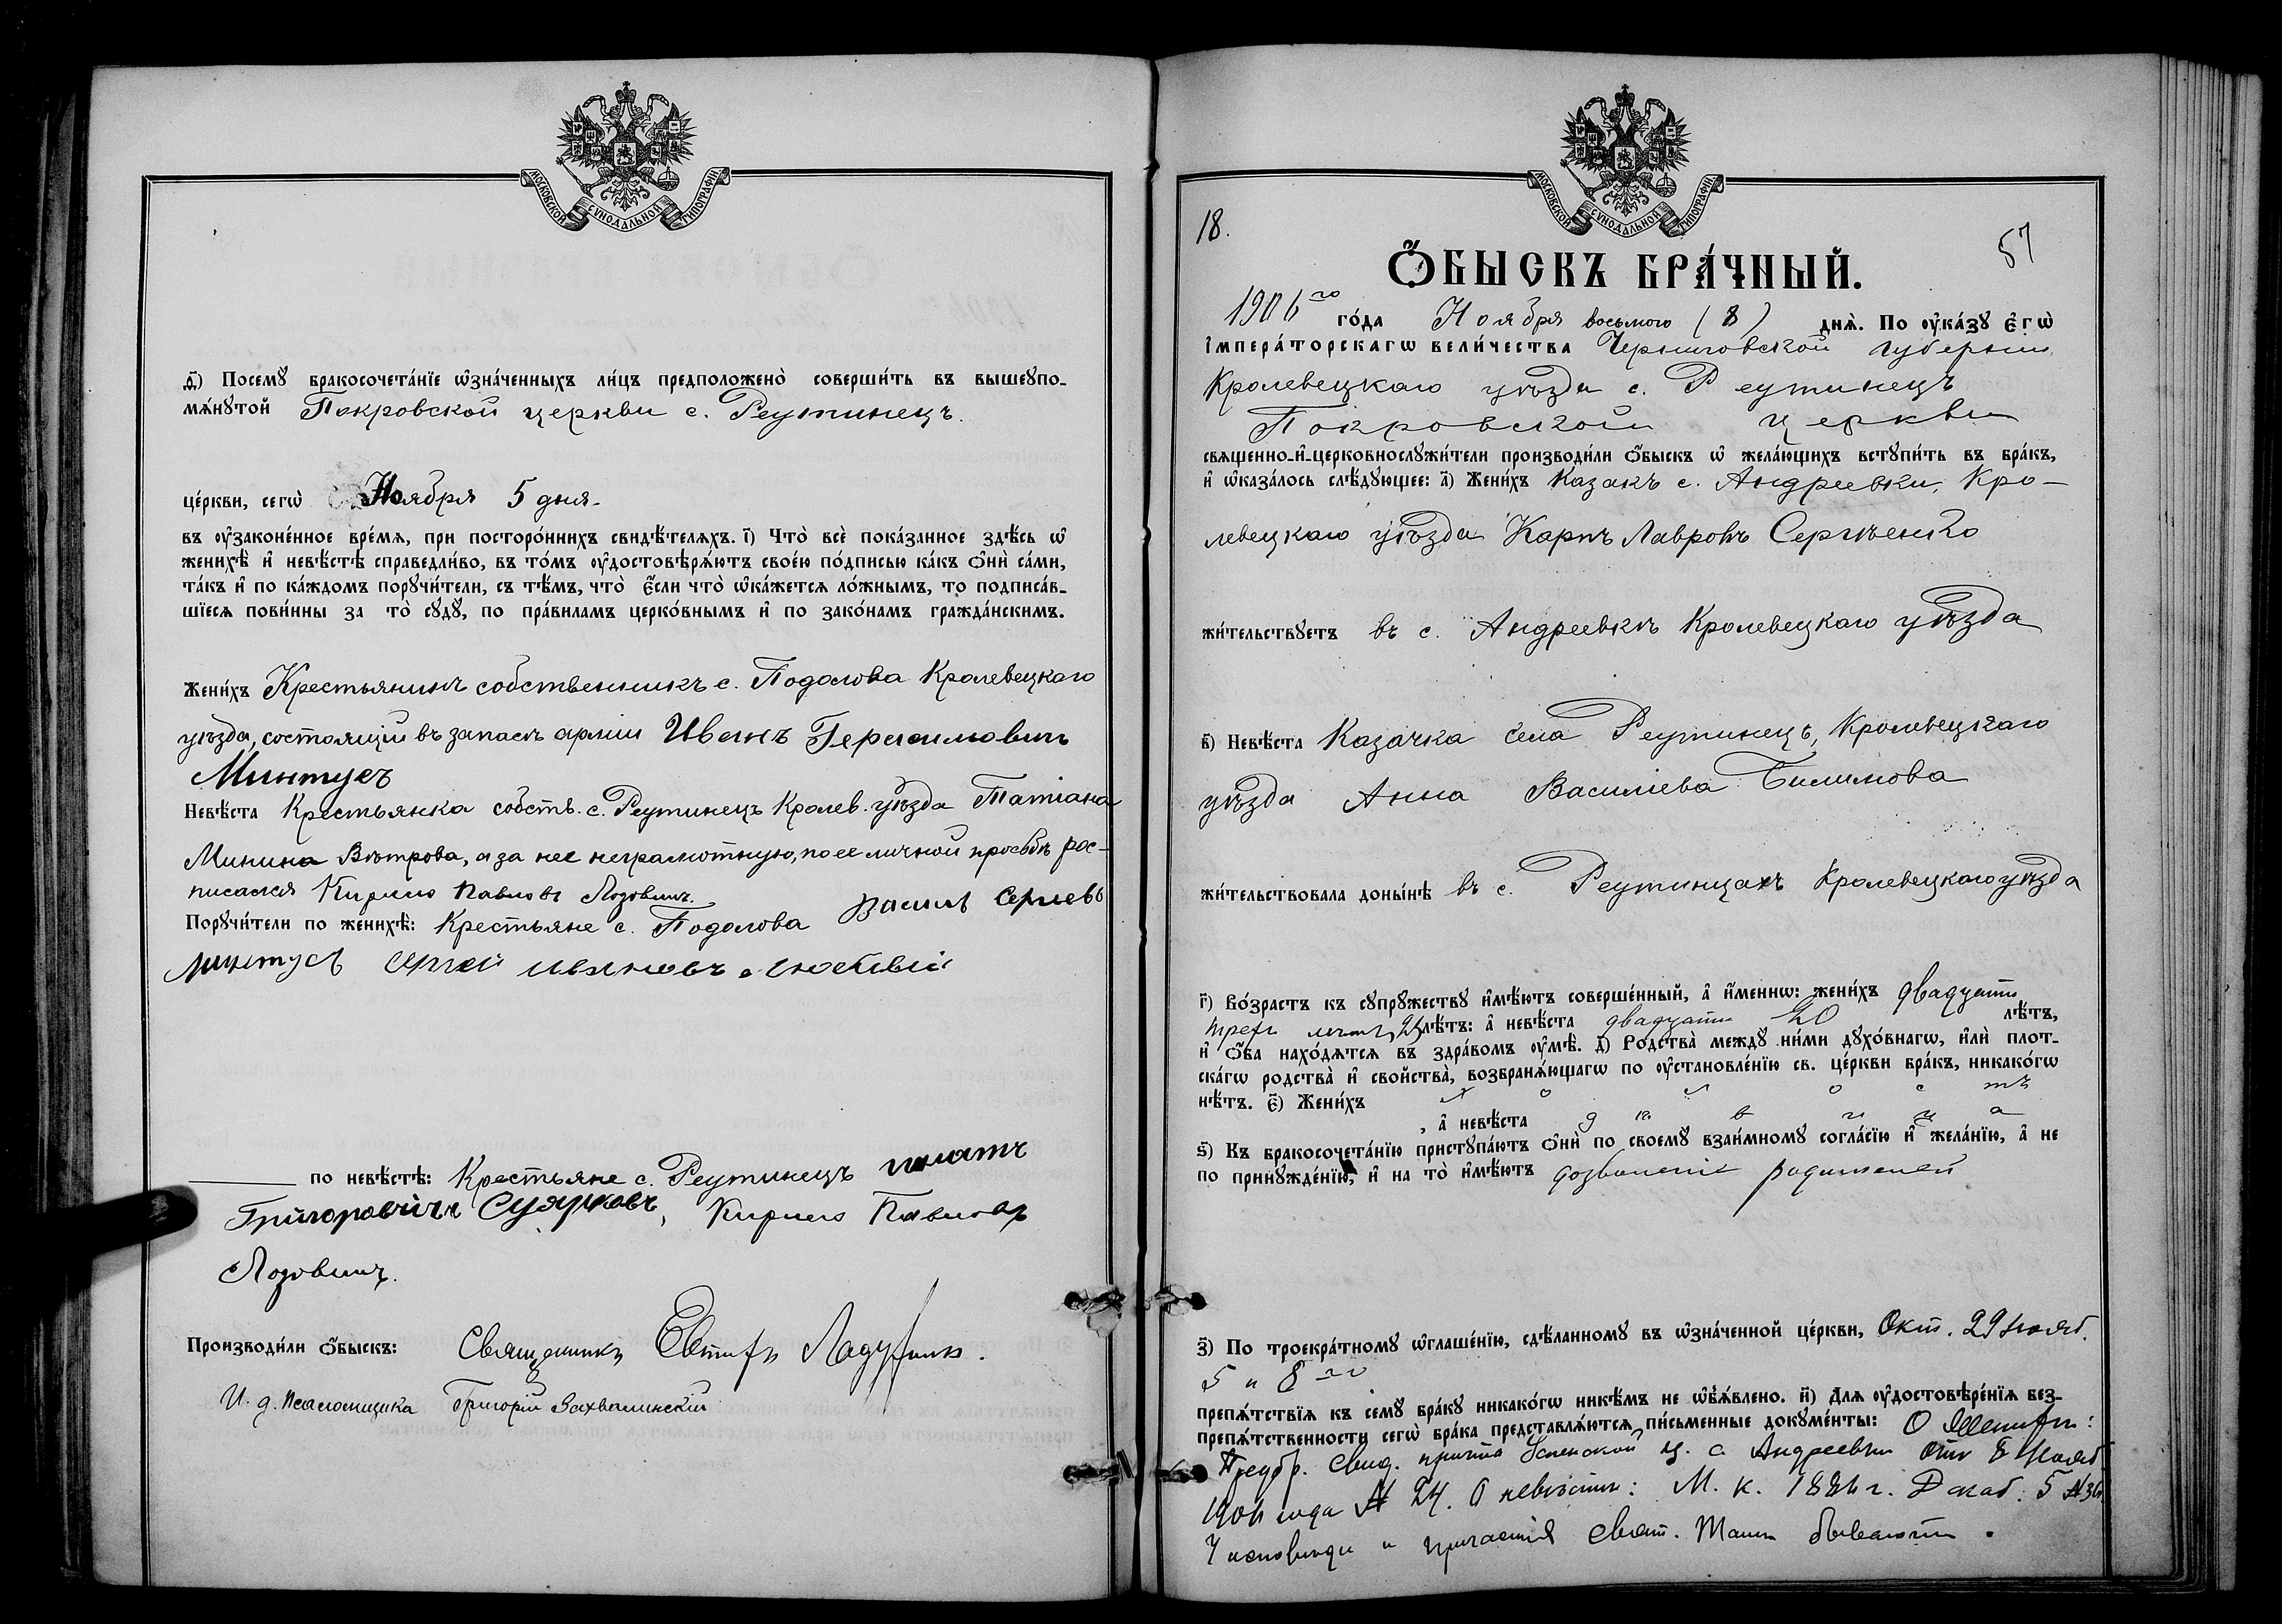 МОСКОВСКОЙ СѴНОДАЛЬНОЙ ТИПОГРАФІИ
ѳ҃) Посемꙋ бракосочета́нїе ѡ҆зна́ченныхъ ли́цъ предположено̀ соверши́ть въ вышеꙋпо-
мѧ́нꙋтой Покровской церкви с. Реутинецъ.
це́ркви, сегѡ̀ Ноября 5 дня.
въ ᲂу҆законе́нное вре́мѧ, при посторо́ннихъ свидѣ́телѧхъ. і҃) Что̀ всѐ пока́занное здѣ́сь ѡ҆
женихѣ̀ и҆ невѣ́стѣ справедли́во, въ то́мъ ᲂу҆достовѣрѧ́ютъ свое́ю по́дписью ка́къ ѻ҆нѝ са́ми,
та́къ и҆ по ка́ждомъ порꙋчи́тели, съ тѣ́мъ, что̀ є҆́сли что̀ ѡ҆ка́жетсѧ ло́жнымъ, то подписа́в-
шїесѧ пови́нны за то̀ сꙋдꙋ̀, по пра́виламъ церко́внымъ и҆ по зако́намъ гражда́нскимъ.
Жени́хъ Крестьянинъ собственникъ с. Подолова Кролевецкаго
уѣзда, состоящій въ запасѣ арміи Иванъ Герасимовичъ
Минтусъ
Невѣ́ста Крестьянка собств. с. Реутинецъ Кролев. уѣзда Татіана
Минина Вѣтрова, а за нее неграмотную, по ее личной просьбѣ рос-
писался Кирило Павловъ Лозовичъ.
Порꙋчи́тели по женихѣ̀: Крестьяне с. Подолова Василь Сергіевъ
Минтусъ Сергей Ивановъ
по невѣ́стѣ: Крестьяне с. Реутинецъ Игнатъ
Григоровичъ Суярковъ, Кирило Павловъ
Лозовичъ.
Производи́ли ѻ҆́быскъ: Священникъ
И. д. Псаломщика Григорій Захвалинскій
МОСКОВСКОЙ СѴНОДАЛЬНОЙ ТИПОГРАФІИ
18.
57
Ѻ҆́БЫСКЪ БРА́ЧНЫЙ.
1906 го го́да Ноября восьмого (8) днѧ̀. По ᲂу҆ка́зꙋ є҆гѡ̀
і҆мпера́торскагѡ вели́чества Черниговской губерніи
Кролевецкаго уѣзда с. Реутинецъ
Покровской церкви
свѧщенно-и҆-церковнослꙋжи́тели производи́ли ѻ҆́быскъ ѡ҆ жела́ющихъ встꙋпи́ть въ бра́къ,
и҆ ѡ҆каза́лось слѣ́дꙋющее: а҃) Жени́хъ Казакъ с. Андреевки, Кро-
левецкаго уѣзда Карпъ Лавровъ Сергѣенко
жи́тельствꙋетъ въ с. Андреевкѣ Кролевецкаго уѣзда
в҃) Невѣ́ста Казачка села Реутинецъ, Кролевецкаго
уѣзда Анна Василіева Билимова
жи́тельствовала доны́нѣ въ с. Реутинцахъ Кролевецкаго уѣзда
г҃) Во́зрастъ къ сꙋпрꙋ́жествꙋ и҆мѣ́ютъ соверше́нный, а҆ и҆́меннѡ: жени́хъ двадцати
трехъ лѣтъ, 23 лѣ́тъ: а҆ невѣ́ста двадцати 20 лѣ́тъ,
и҆ ѻ҆́ба нахо́дѧтсѧ въ здра́вомъ ᲂу҆мѣ̀. д҃) Родства̀ междꙋ ни́ми дꙋхо́внагѡ, и҆лѝ плот-
ска́гѡ родства̀ и҆ свойства̀, возбранѧ́ющагѡ по ᲂу҆становле́нїю св. це́ркви бра́къ, никако́гѡ
нѣ́тъ. є҃) Жени́хъ холостъ
, а҆ невѣ́ста дѣвица
ѕ҃) Къ бракосочета́нїю пристꙋпа́ютъ ѻ҆нѝ по своемꙋ̀ взаи́мномꙋ согла́сїю и҆ жела́нїю, а҆ не
по принꙋжде́нїю, и҆ на то̀ и҆мѣ́ютъ дозволеніе родителей
з҃) По троекра́тномꙋ ѡ҆глаше́нїю, сдѣ́ланномꙋ въ ѡ҆зна́ченной це́ркви, Окт. 29 нояб.
5 и 8 го
препѧ́тствїѧ къ семꙋ̀ бра́кꙋ никако́гѡ никѣ́мъ не ѡ҆б̾ѧ́влено. и҃) Длѧ ᲂу҆достовѣре́нїѧ без-
препѧ́тственности сегѡ̀ бра́ка представлѧ́ютсѧ пи́сьменные докꙋме́нты: О женихѣ:
Предбр. свид. причта Успенской ц. с. Андреевки отъ 8 нояб
1906 года № 24. О невѣстѣ: М. к. 1886 г. Декаб. 5 № 36.
У исповѣди и причастія Свят. Таинъ бываютъ.